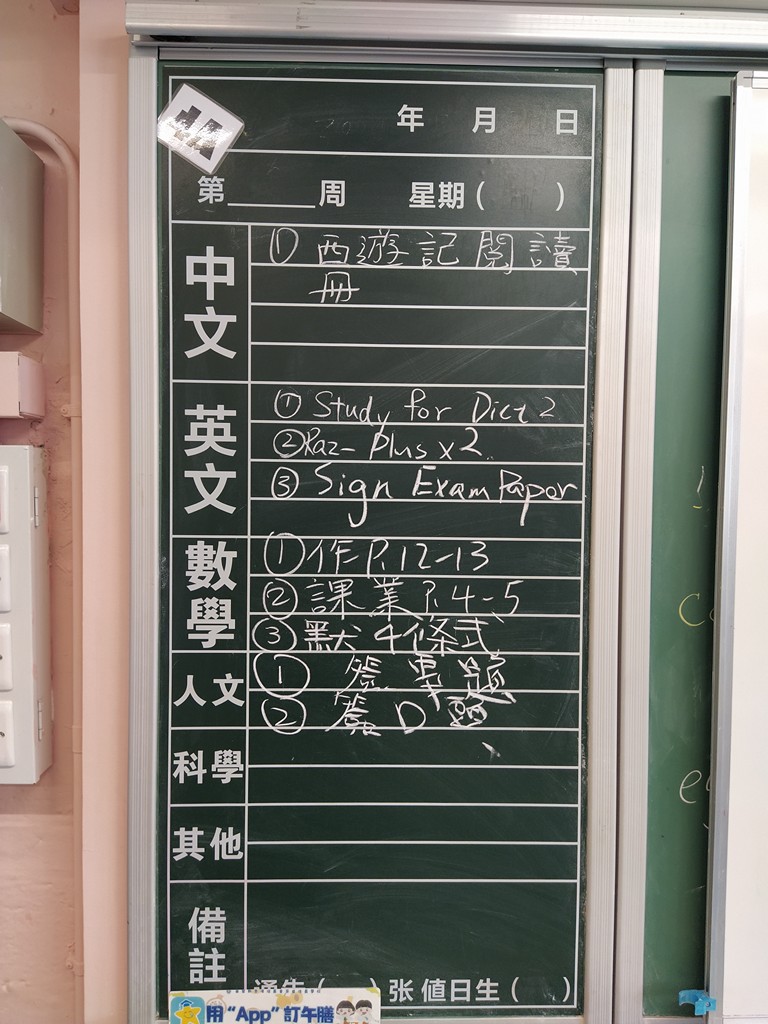 4A
年 月 日
第______周 星期( )
中文
① 西遊記閱讀
冊
英文
① Study for Dict 2
② Raz-Plus x2
③ Sign Exam Paper
數學
① 作P.12-13
② 課業P.4-5
③ 默4條式
人文
① 簽專題
② 簽D題
科學
其他
備註
通告( )张 值日生( )
用“App”訂午膳